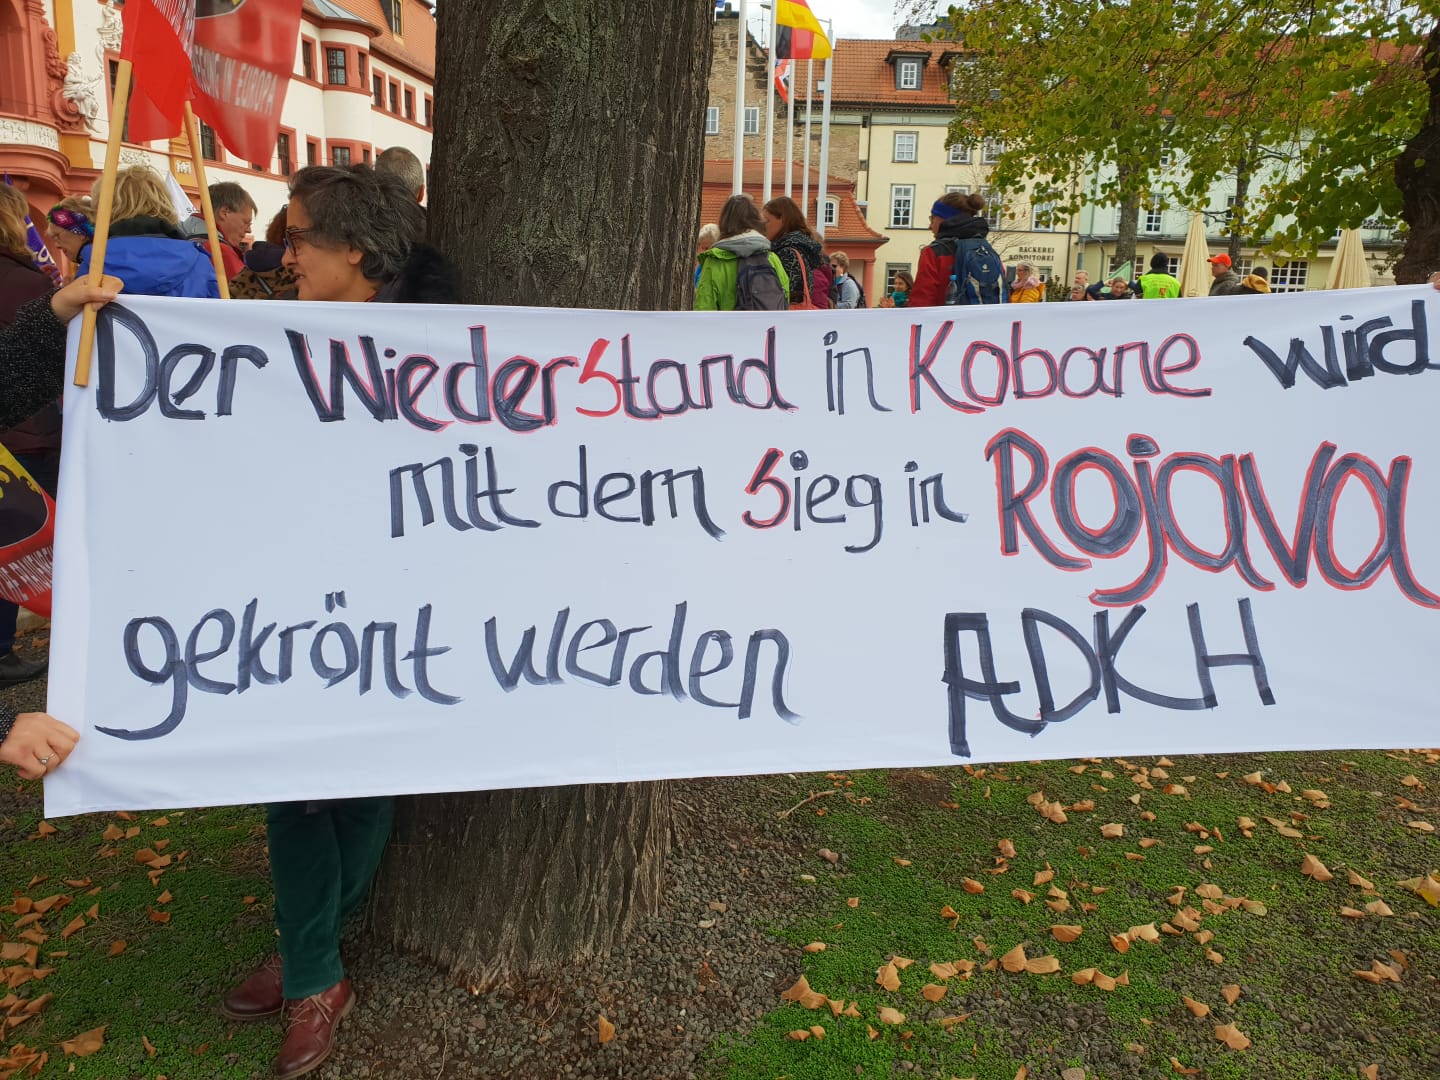 EGUNG IN EUROPA
BÄCKEREI
KONDITOREI
Der WiederStand in Kobane wird
mit dem Sieg in Rojava
gekrönt werden ADKH